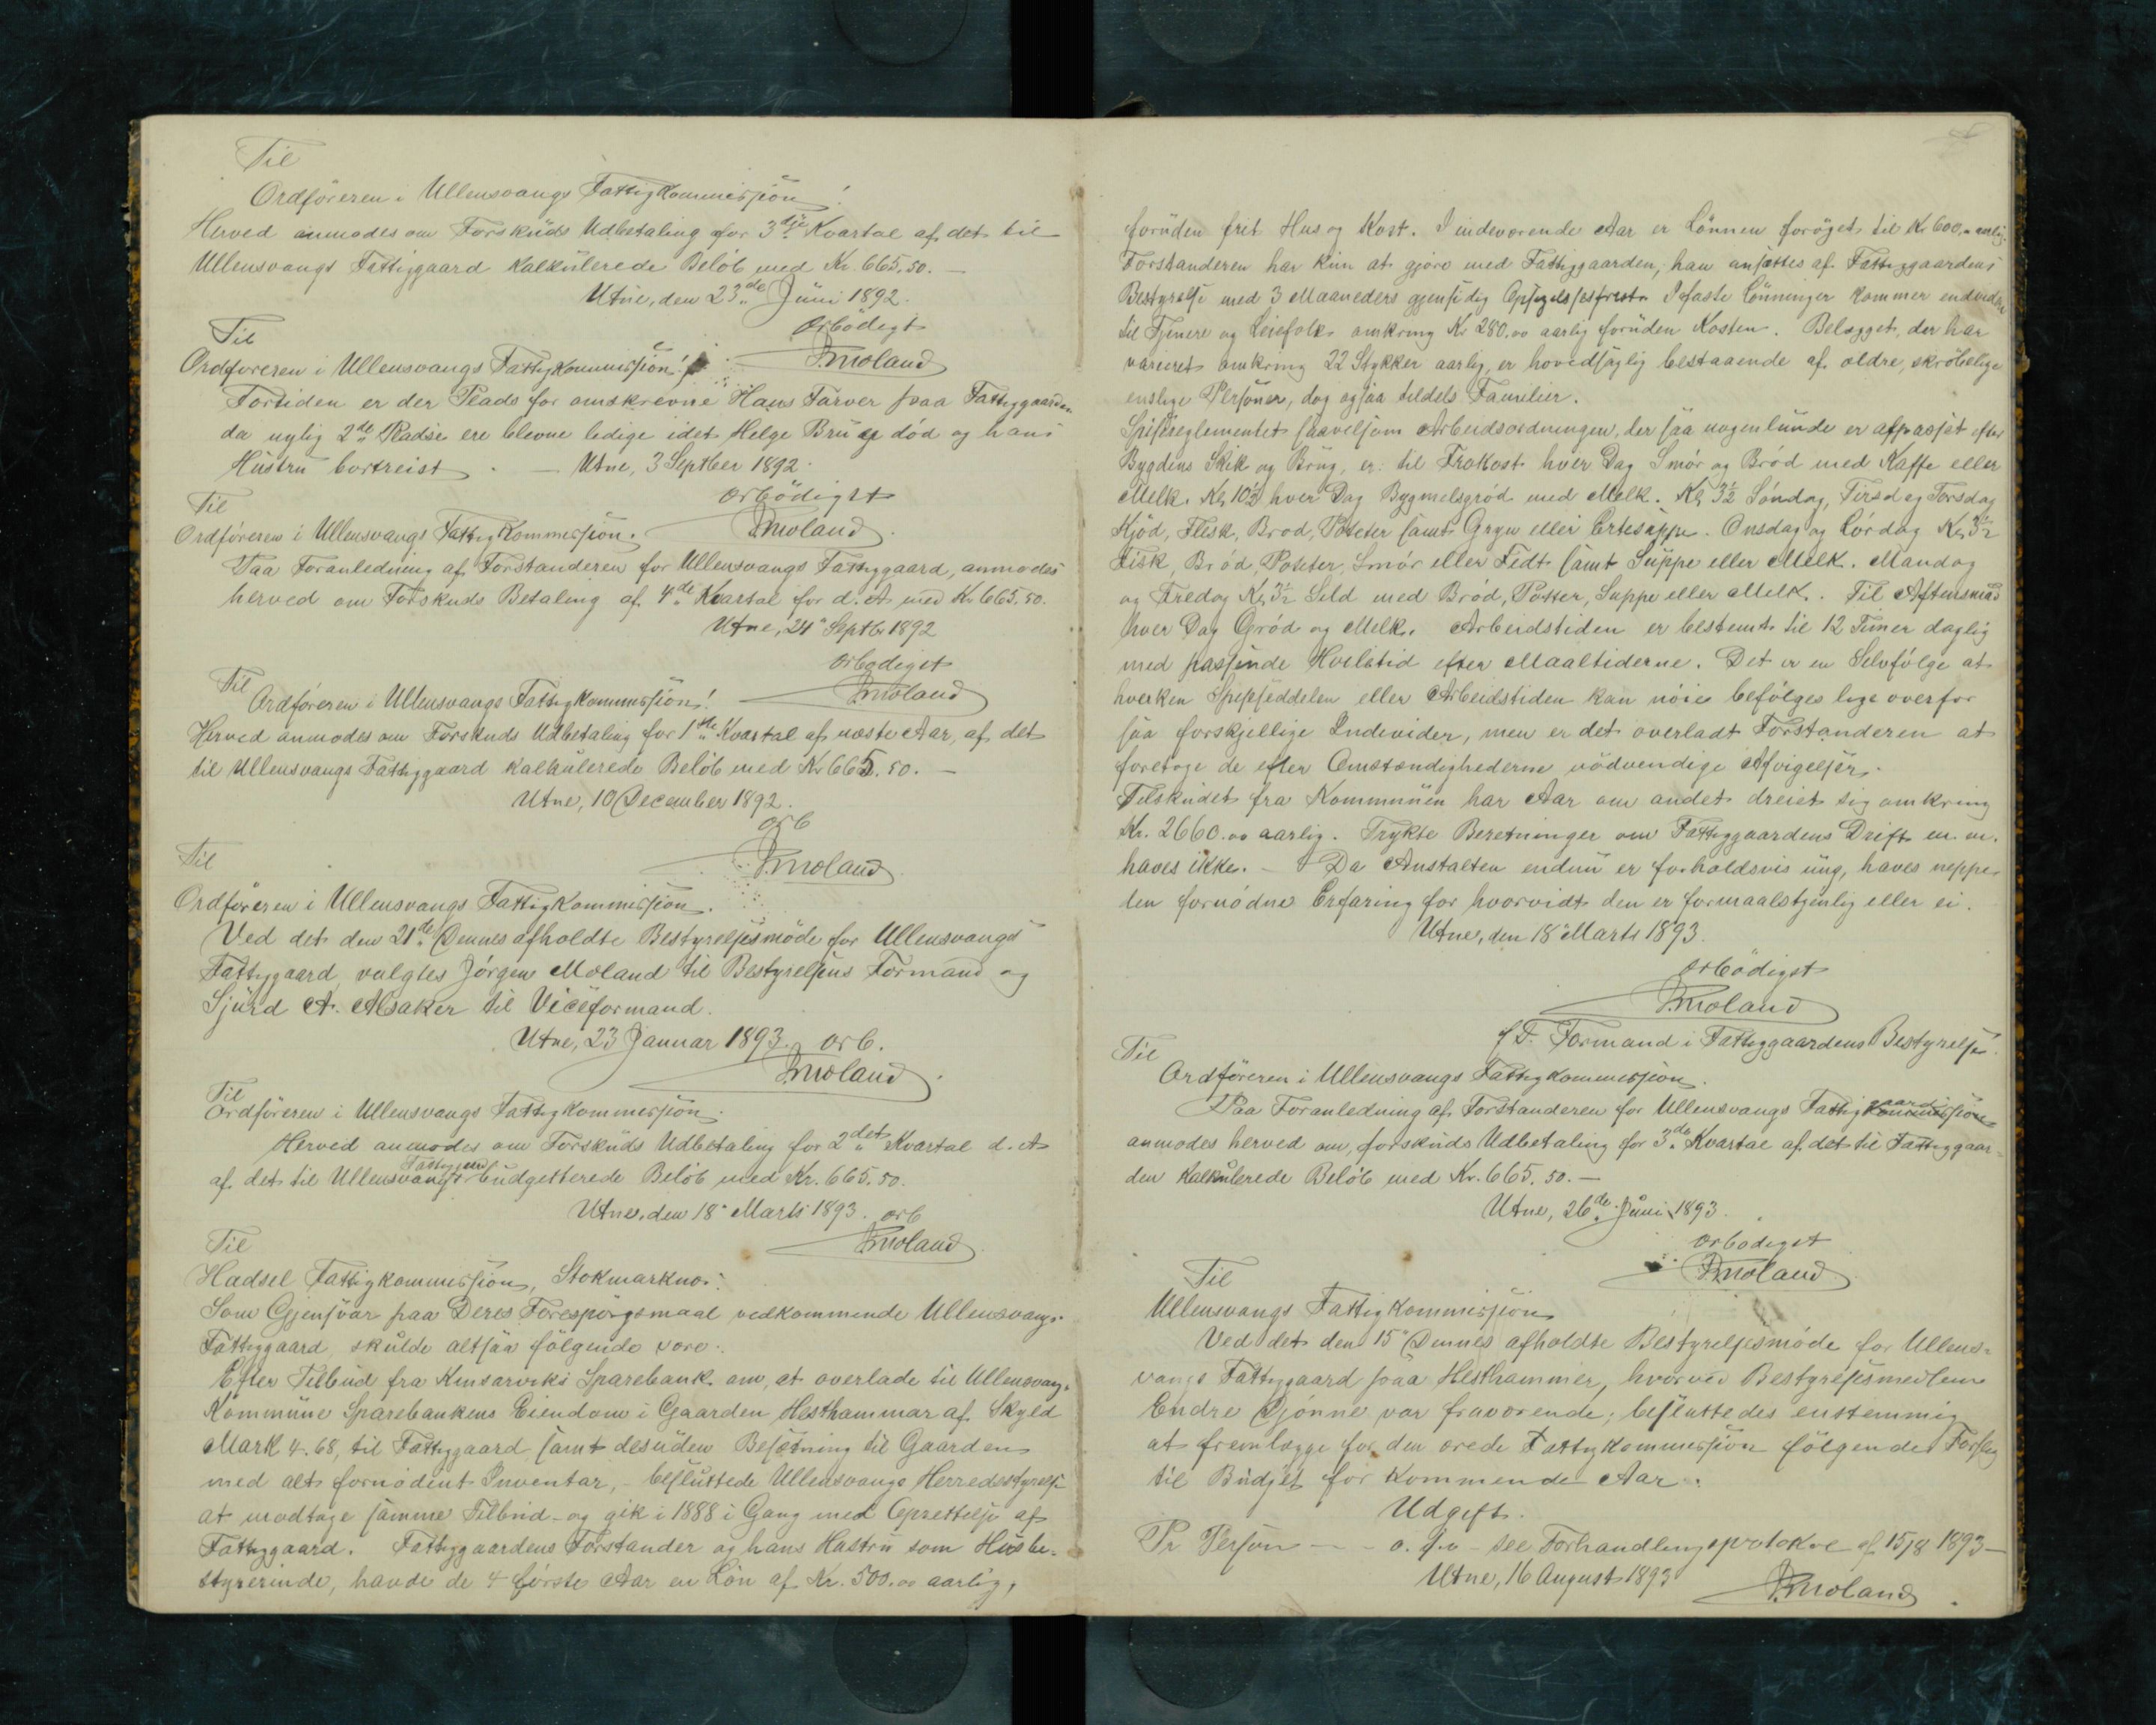 Til
Ordföreren i Ullensvangs Fattigkommission!
Herved anmodes om Forskuds Udbetaling for 3dje Kvartal af det til
Ullensvangs Fattiggaard kalkulerede Belöb med Kr. 665,50. —
Utne, den 23de Juni 1892.
Orbödigt
J. Moland
Til
Ordföreren i Ullensvangs Fattigkommission!
Fortiden er der Plads for omskrevne Hans Farver paa Fattiggaarden
da nylig 2de Radse ere blevne ledige idet Helge Bru er död og hans
Hustru bortreist. — Utne, 3 Septber 1892.
orbödigst
J. Moland
Til
Ordföreren i Ullensvangs Fattigkommission.
Paa Foranledning af Forstanderen for Ullensvangs Fattiggaard, anmodes
herved om Forskuds Betaling af 4de Kvartal for d. A. med Kr. 665,50.
Utne, 24' Septbr 1892
orbødigst
J. Moland
Til
Ordföreren i Ullensvangs Fattigkommission!
Herved anmodes om Forskuds Udbetaling for 1ste Kvartal af næste Aar, af det
til Ullensvangs Fattiggaard kalkulerede Belöb med Kr 665.50. —
Utne, 10 December 1892.
orb
J. Moland
Til
Ordföreren i Ullensvangs Fattigkommission.
Ved det den 21de Dennes afholdte Bestyrelsesmöde for Ullensvangs
Fattiggaard valgtes Jörgen Moland til Bestyrelsens Formand og
Sjurd A. Alsaker til Viceformand.
Utne, 23 Januar 1893. orb.
J. Moland
Til
Ordföreren i Ullensvangs Fattigkommission.
Herved anmodes om Forskuds Udbetaling for 2det Kvartal d. A
af det til Ullensvangs Fattiggaard budgetterede Belöb med Kr. 665.50.
Utne, den 18' Marts 1893. orb
J. Moland
Til
Hadsel Fattigkommission, Stokmarknes.
Som Gjensvar paa Deres Forespörgsmaal vedkommende Ullensvangs
Fattiggaard, skulde altsaa fölgende være:
Efter Tilbud fra Kinsarviks Sparebank om, at overlade til Ullensvangs
Kommune Sparebankens Eiendom i Gaarden Hesthammar af Skyld
Mark 4.68, til Fattiggaard samt desuden Besætning til Gaarden
med alt fornödent Inventar, - besluttede Ullensvangs Herredsstyrelse
at modtage samme Tilbud - og gik i 1888 i Gang med Oprettelse af
Fattiggaard. Fattiggaardens Forstander og hans Hustru som Husbe-
styrerinde, havde de 4 förste Aar en Lön af Kr. 500.00 aarlig,
foruden frit Hus og Kost. I indeværende Aar er Lönnen foröget til Kr 600,- aarlig.
Forstanderen har kun at gjöre med Fattiggaarden, han ansættes af Fattiggaardens
Bestyrelse med 3 Maaneders gjensidig Opsigelsesfrist. I faste Lönninger kommer endvidere
til Tjenere og Leiefolk omkring Kr 280.00 aarlig foruden Kosten. Belægget, der har
varieret omkring 22 Stykker aarlig, er hovedsaglig bestaaende af ældre, skröbelige
enslige Personer, dog ogsaa tildels Familier.
Spisereglementet saavelsom Arbeidsordningen, der saa nogenlunde er afpasset efter
Bygdens Skik og Brug, er: til Frokost hver Dag Smör og Bröd med Kaffe eller
Melk. Kl, 10½ hver Dag Bygmelsgröd med Melk. Kl, 3½ Söndag, Tirsd og Torsdag
Kjöd, Flesk, Bröd, Poteter samt Gryn eller Ertesuppe. Onsdag og Lördag Kl, 3½
Fisk, Bröd, Poteter, Smör eller Fedt samt Suppe eller Melk. Mandag
og Fredag Kl, 3½ Sild med Bröd, Poteter, Suppe eller Melk. Til Aftensmad
hver Dag Gröd og Melk. Arbeidstiden er bestemt til 12 Timer daglig
med passende Hviletid efter Maaltiderne. Det er en Selvfölge at
hverken Spiseseddelen eller Arbeidstiden kan nöie befölges lige overfor
saa forskjellige Individer, men er det overladt Forstanderen at
foretage de efter Omstændighederne nödvendige Afvigelser.
Tilskudet fra Kommunen har Aar om andet dreiet sig omkring
Kr. 2660.00 aarlig. Trykte Beretninger om Fattiggaardens Drift m. m.
haves ikke. - Da Anstalten endnu er forholdsvis ung, haves neppe
den fornödne Erfaring for hvorvidt den er formaalstjenlig eller ei.
Utne, den 18' Marts 1893.
orbödigst
J. Moland
f. T. Formand i Fattiggaardens Bestyrelse.
Til
Ordföreren i Ullensvangs Fattigkommission.
Paa Foranledning af Forstanderen for Ullensvangs Fattigkommission gaard
anmodes herved om, forskuds Udbetaling for 3de Kvartal af det til Fattiggaar-
den kalkulerede Belöb med Kr. 665.50. —
Utne, 26de Juni 1893.
orbødigst
J. Moland
Til
Ullensvangs Fattigkommission
Ved det den 15' Dennes afholdte Bestyrelsesmöde for Ullens-
vangs Fattiggaard paa Hesthammer, hvorved Bestyrelsesmedlem
Endre Djönne var fraværende, besluttedes enstemmig
at fremlægge for den ærede Fattigkommission fölgende Forslag
til Budjet for kommende Aar:
Udgift.
Pr Person — - o. s. v - see Forhandlingsprotokol af 15/8 1893 —
Utne, 16 August 1893
J. Moland